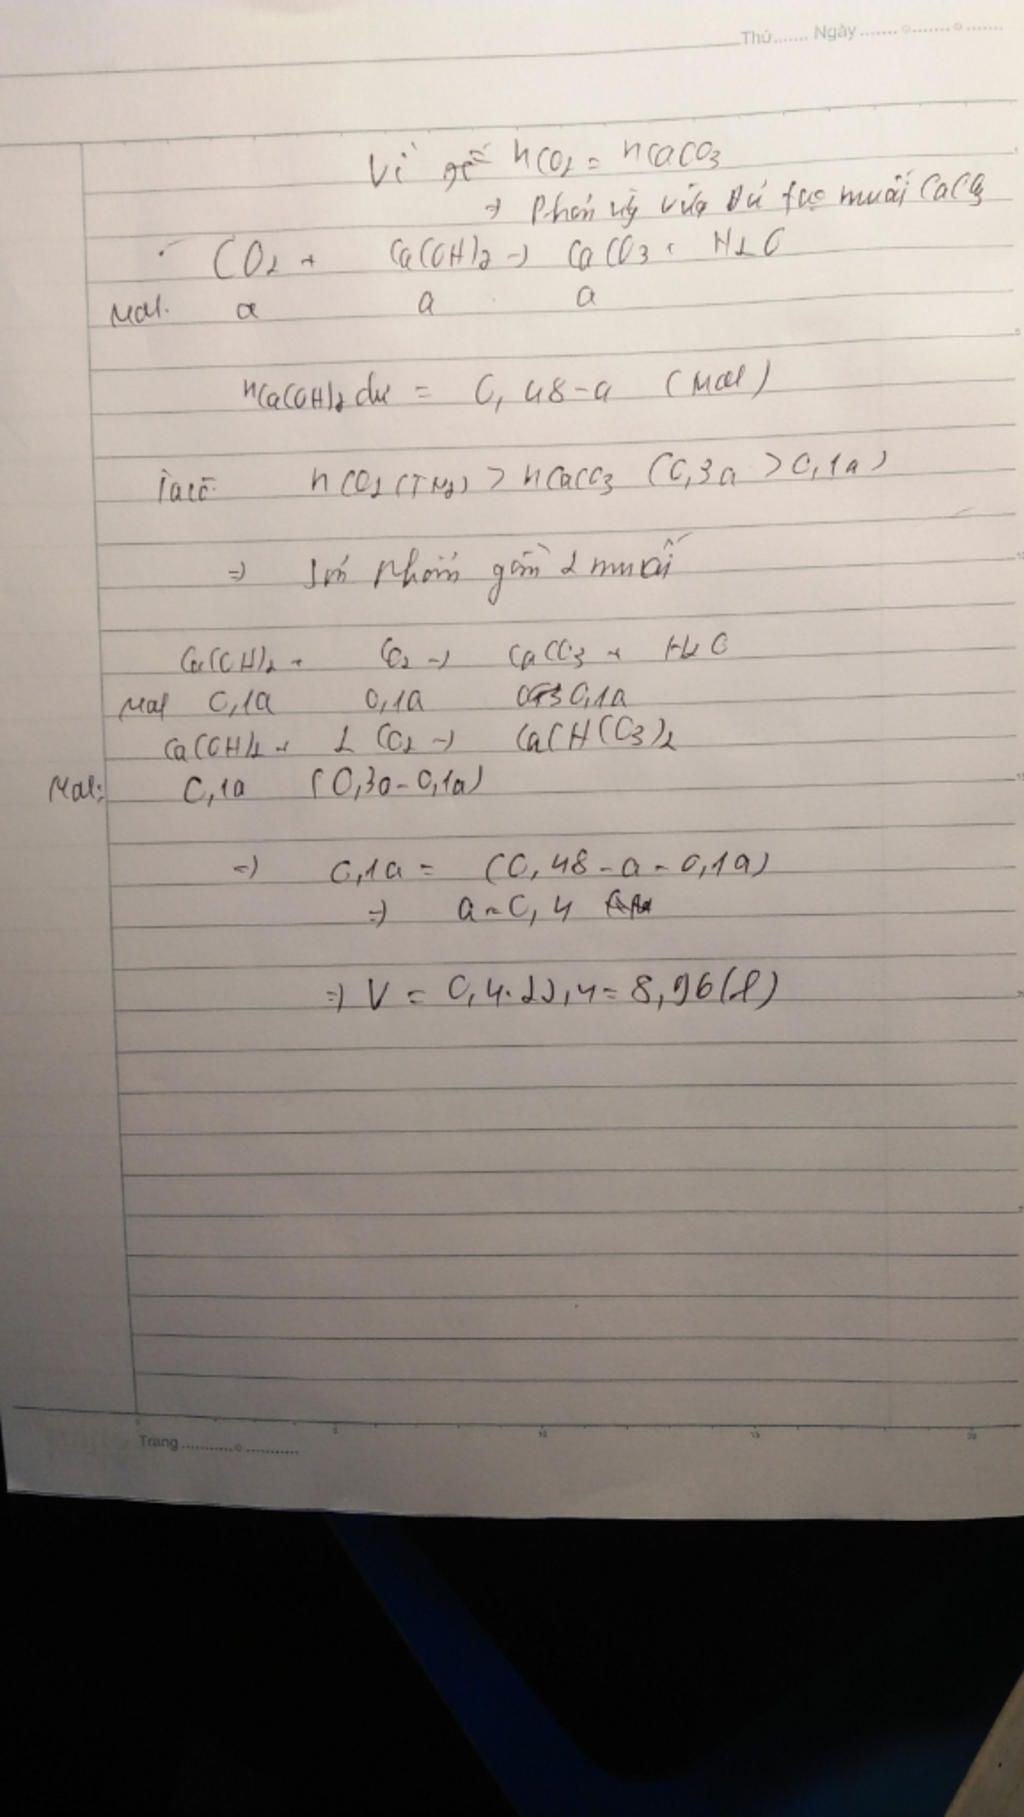 Thứ....... Ngày ....... o ....... o .......
Vì nCO2 = nCaCO3
=> Phản ứng vừa đủ tạo muối CaCO3
CO2 + Ca(OH)2 -> CaCO3 + H2O
Mol. a a a
nCa(OH)2 dư = 0,48-a (Mol)
Ta có: nCO2 (TN2) > nCaCO3 (0,3a > 0,1a)
=> Sản phẩm gồm 2 muối
Ca(OH)2 + CO2 -> CaCO3 + H2O
Mol 0,1a 0,1a 0,1a
Ca(OH)2 + 2 CO2 -> Ca(HCO3)2
Mol: 0,1a (0,3a-0,1a)
=> 0,1a = (0,48-a-0,1a)
=> a = 0,4
=> V = 0,4.22,4 = 8,96(l)
Trang ........... o ...........
5 10 15 20